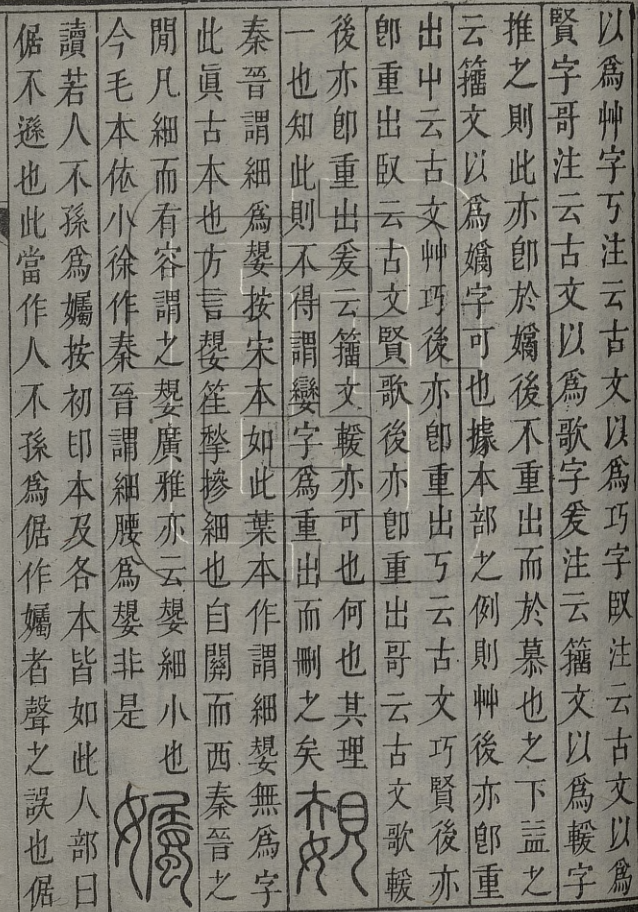 以爲艸字丂注云古文以爲巧字臤注云古文以爲
賢字哥注云古文以爲歌字爰注云籒文以爲轅字
推之則此亦卽於後不重出而於慕也之下益之
云籒文以爲字可也據本部之例則艸後亦卽重
出屮云古文艸巧後亦卽重出丂云古文巧賢後亦
卽重出臤云古文賢歌後亦卽重出哥云古文歌轅
後亦卽重出爰云籒文轅亦可也何也其理
一也知此則不得謂孌字爲重出而刪之矣
嫢
秦晉謂細爲嫢按宋本如此葉本作謂細嫢無爲字
此眞古本也方言嫢笙揫摻細也自關而西秦晉之
閒凡細而有容謂之嫢廣雅亦云嫢細小也
今毛本依小徐作秦晉謂細腰爲嫢非是
孎
讀若人不孫爲孎按初印本及各本皆如此人部曰
倨不遜也此當作人不孫爲倨作孎者聲之誤也倨